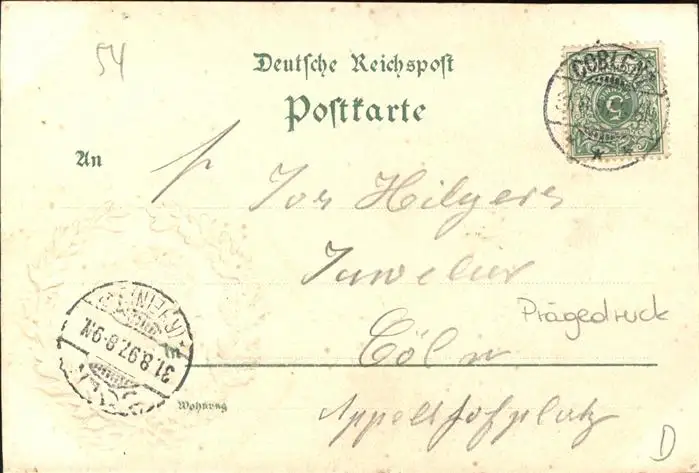 54
Deutsche Reichspost
Postkarte
COBLENZ
5
An
Jos Hilgers
Juwelier
Cöln
Prägedruck
(RHEIN)
31.8.97.8-9N.
Wohnung
Appellhofplatz
D